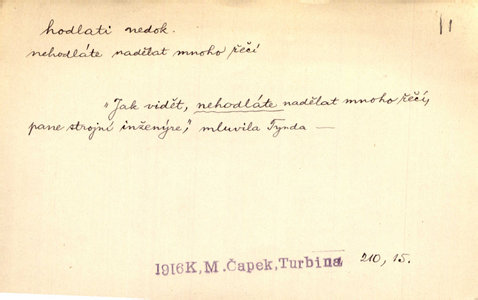 hodlati nedok.
11
nehodláte nadělat mnoho řečí
"Jak vidět, nehodláte nadělat mnoho řečí,
pane strojní inženýre," mluvila Tynda —
1916K,M.Čapek,Turbina 210, 15.